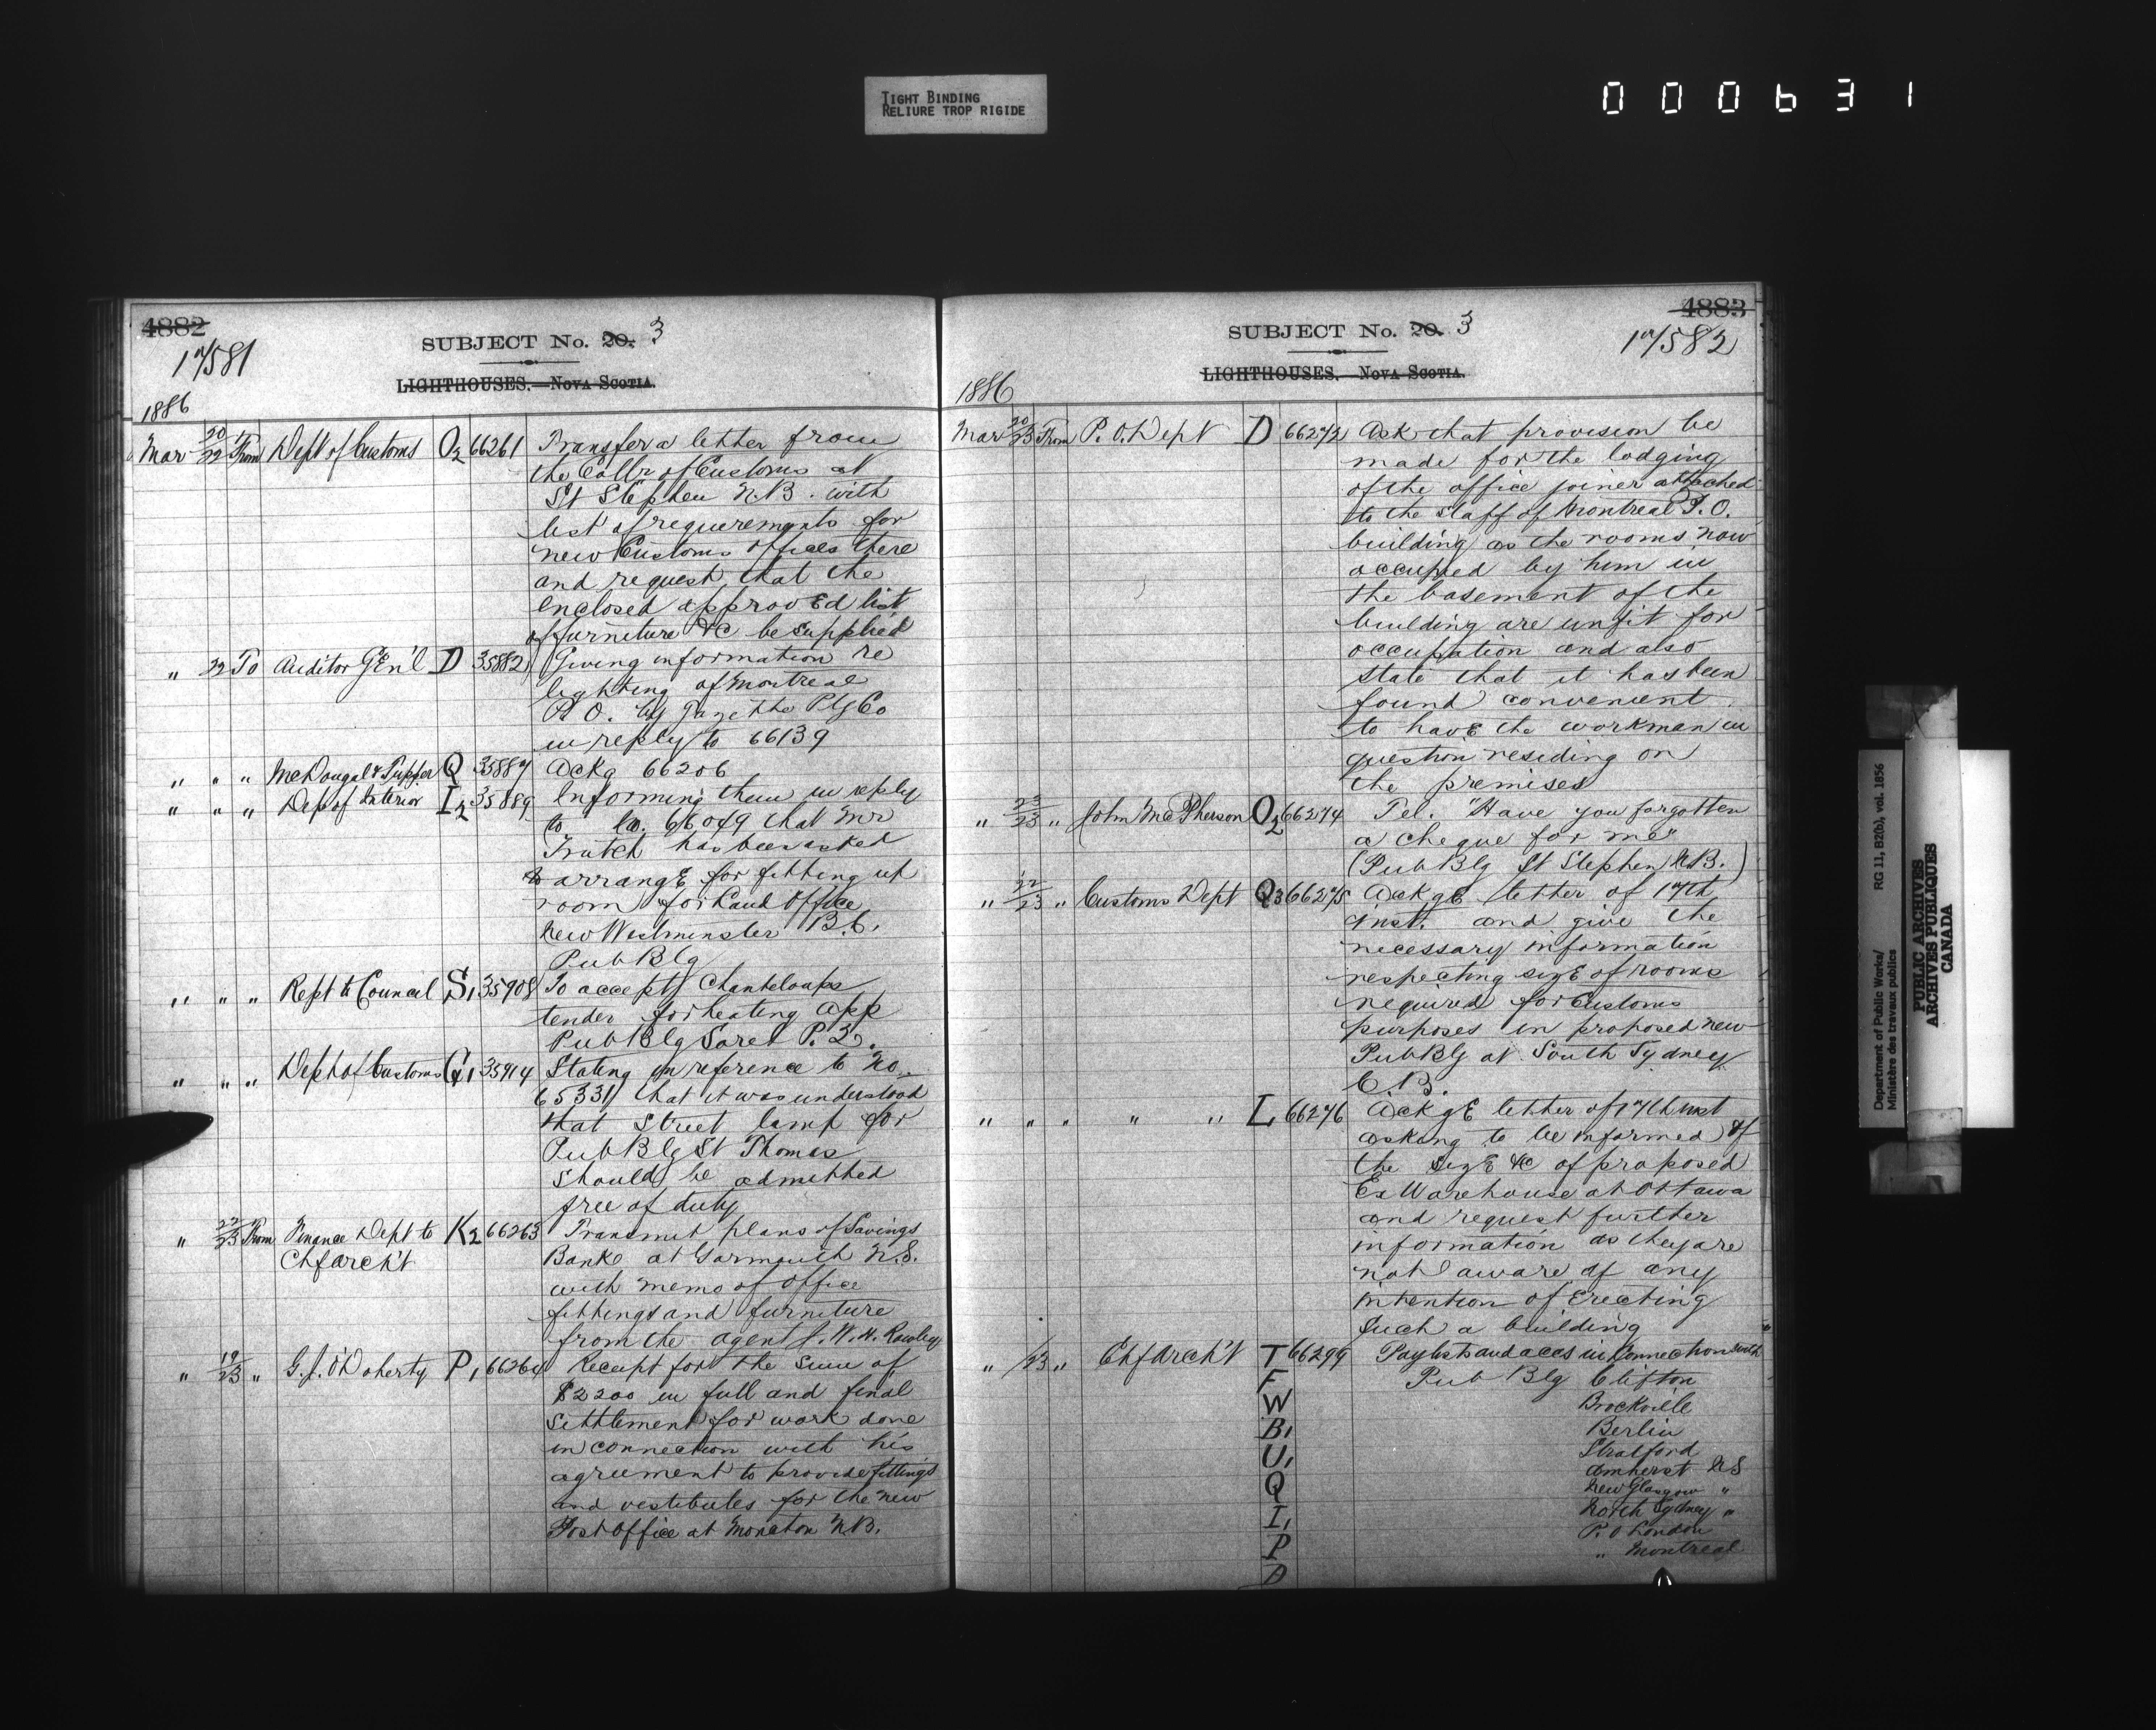 TIGHT BINDING
RELIURE TROP RIGIDE
000631
4882
17581
SUBJECT No. 20. 3
LIGHTHOUSES.—NOVA SCOTIA.
1886
Mar 20/22 From Dept of Customs O2 66261 Transfer a letter from
the Collr of Customs at
St Stephen N.B. with
list of requirements for
new Customs offices there
and request that the
enclosed approved list
of furniture &c be supplied
" 22 To Auditor Gen'l D 35882 Giving information re
lighting of Montreal
P.O. by Gazette Ptg Co
in reply to 66139
" " " McDougal & Tupper Q 35887 Ackg 66206
" " " Dep of Interior I2 35889 Informing them in reply
to 66049 that Mr
Trutch has been asked
to arrange for fitting up
room for Land Office
New Westminster B.C.
Pub Blg
" " " Rept to Council S1 35908 To accept Chanteloups
tender for heating app
Pub Blg Sorel P.Q.
" " " Dept of Customs G1 35914 Stating in reference to No.
65331 that it was understood
that Street lamp for
Pub Blg St Thomas
should be admitted
free of duty
" 22/23 From Finance Dept to K2 66263 Transmit plans of Savings
Chf Arch't Banke at Yarmouth N.S.
with memo of office
fittings and furniture
from the agent J. W. H. Rowley
" 19/23 " G. J. O'Doherty P1 66264 Receipt for the sum of
$2200 in full and final
settlement for work done
in connection with his
agreement to provide fittings
and vestibules for the new
Post Office at Moncton N.B.
4883
17582
SUBJECT No. 20. 3
LIGHTHOUSES. NOVA SCOTIA.
1886
Mar 20/23 From P. O. Dept D 66272 Ask that provision be
made for the lodging
of the office joiner attached
to the staff of Montreal P.O.
building as the rooms now
occupied by him in
the basement of the
building are unfit for
occupation and also
state that it has been
found convenient
to have the workman in
question residing on
the premises
" 23/23 " John McPherson O2 66274 Tel. "Have you forgotten
a cheque for me"
(Pub Blg St Stephen N.B.)
" 22/23 " Customs Dept Q3 66275 Ackge letter of 17th
inst. and give the
necessary information
respecting size of rooms
required for Customs
purposes in proposed new
Pub Blg at South Sydney
C.B.
" " " " " L 66276 Ackge letter of 17th inst
asking to be informed of
the size &c of proposed
Ex Warehouse at Ottawa
and request further
information as they are
not aware of any
intention of erecting
such a building
" /23 " Chf Arch't T 66299 Paylists and accs in Connection with
F Pub Blg Clifton
W Brockville
B1 Berlin
U1 Stratford
Q Amherst NS
I1 New Glasgow "
P North Sydney "
D P.O London
" Montreal
Department of Public Works/
Ministère des travaux publics
RG 11, B2(b), vol. 1856
PUBLIC ARCHIVES
ARCHIVES PUBLIQUES
CANADA